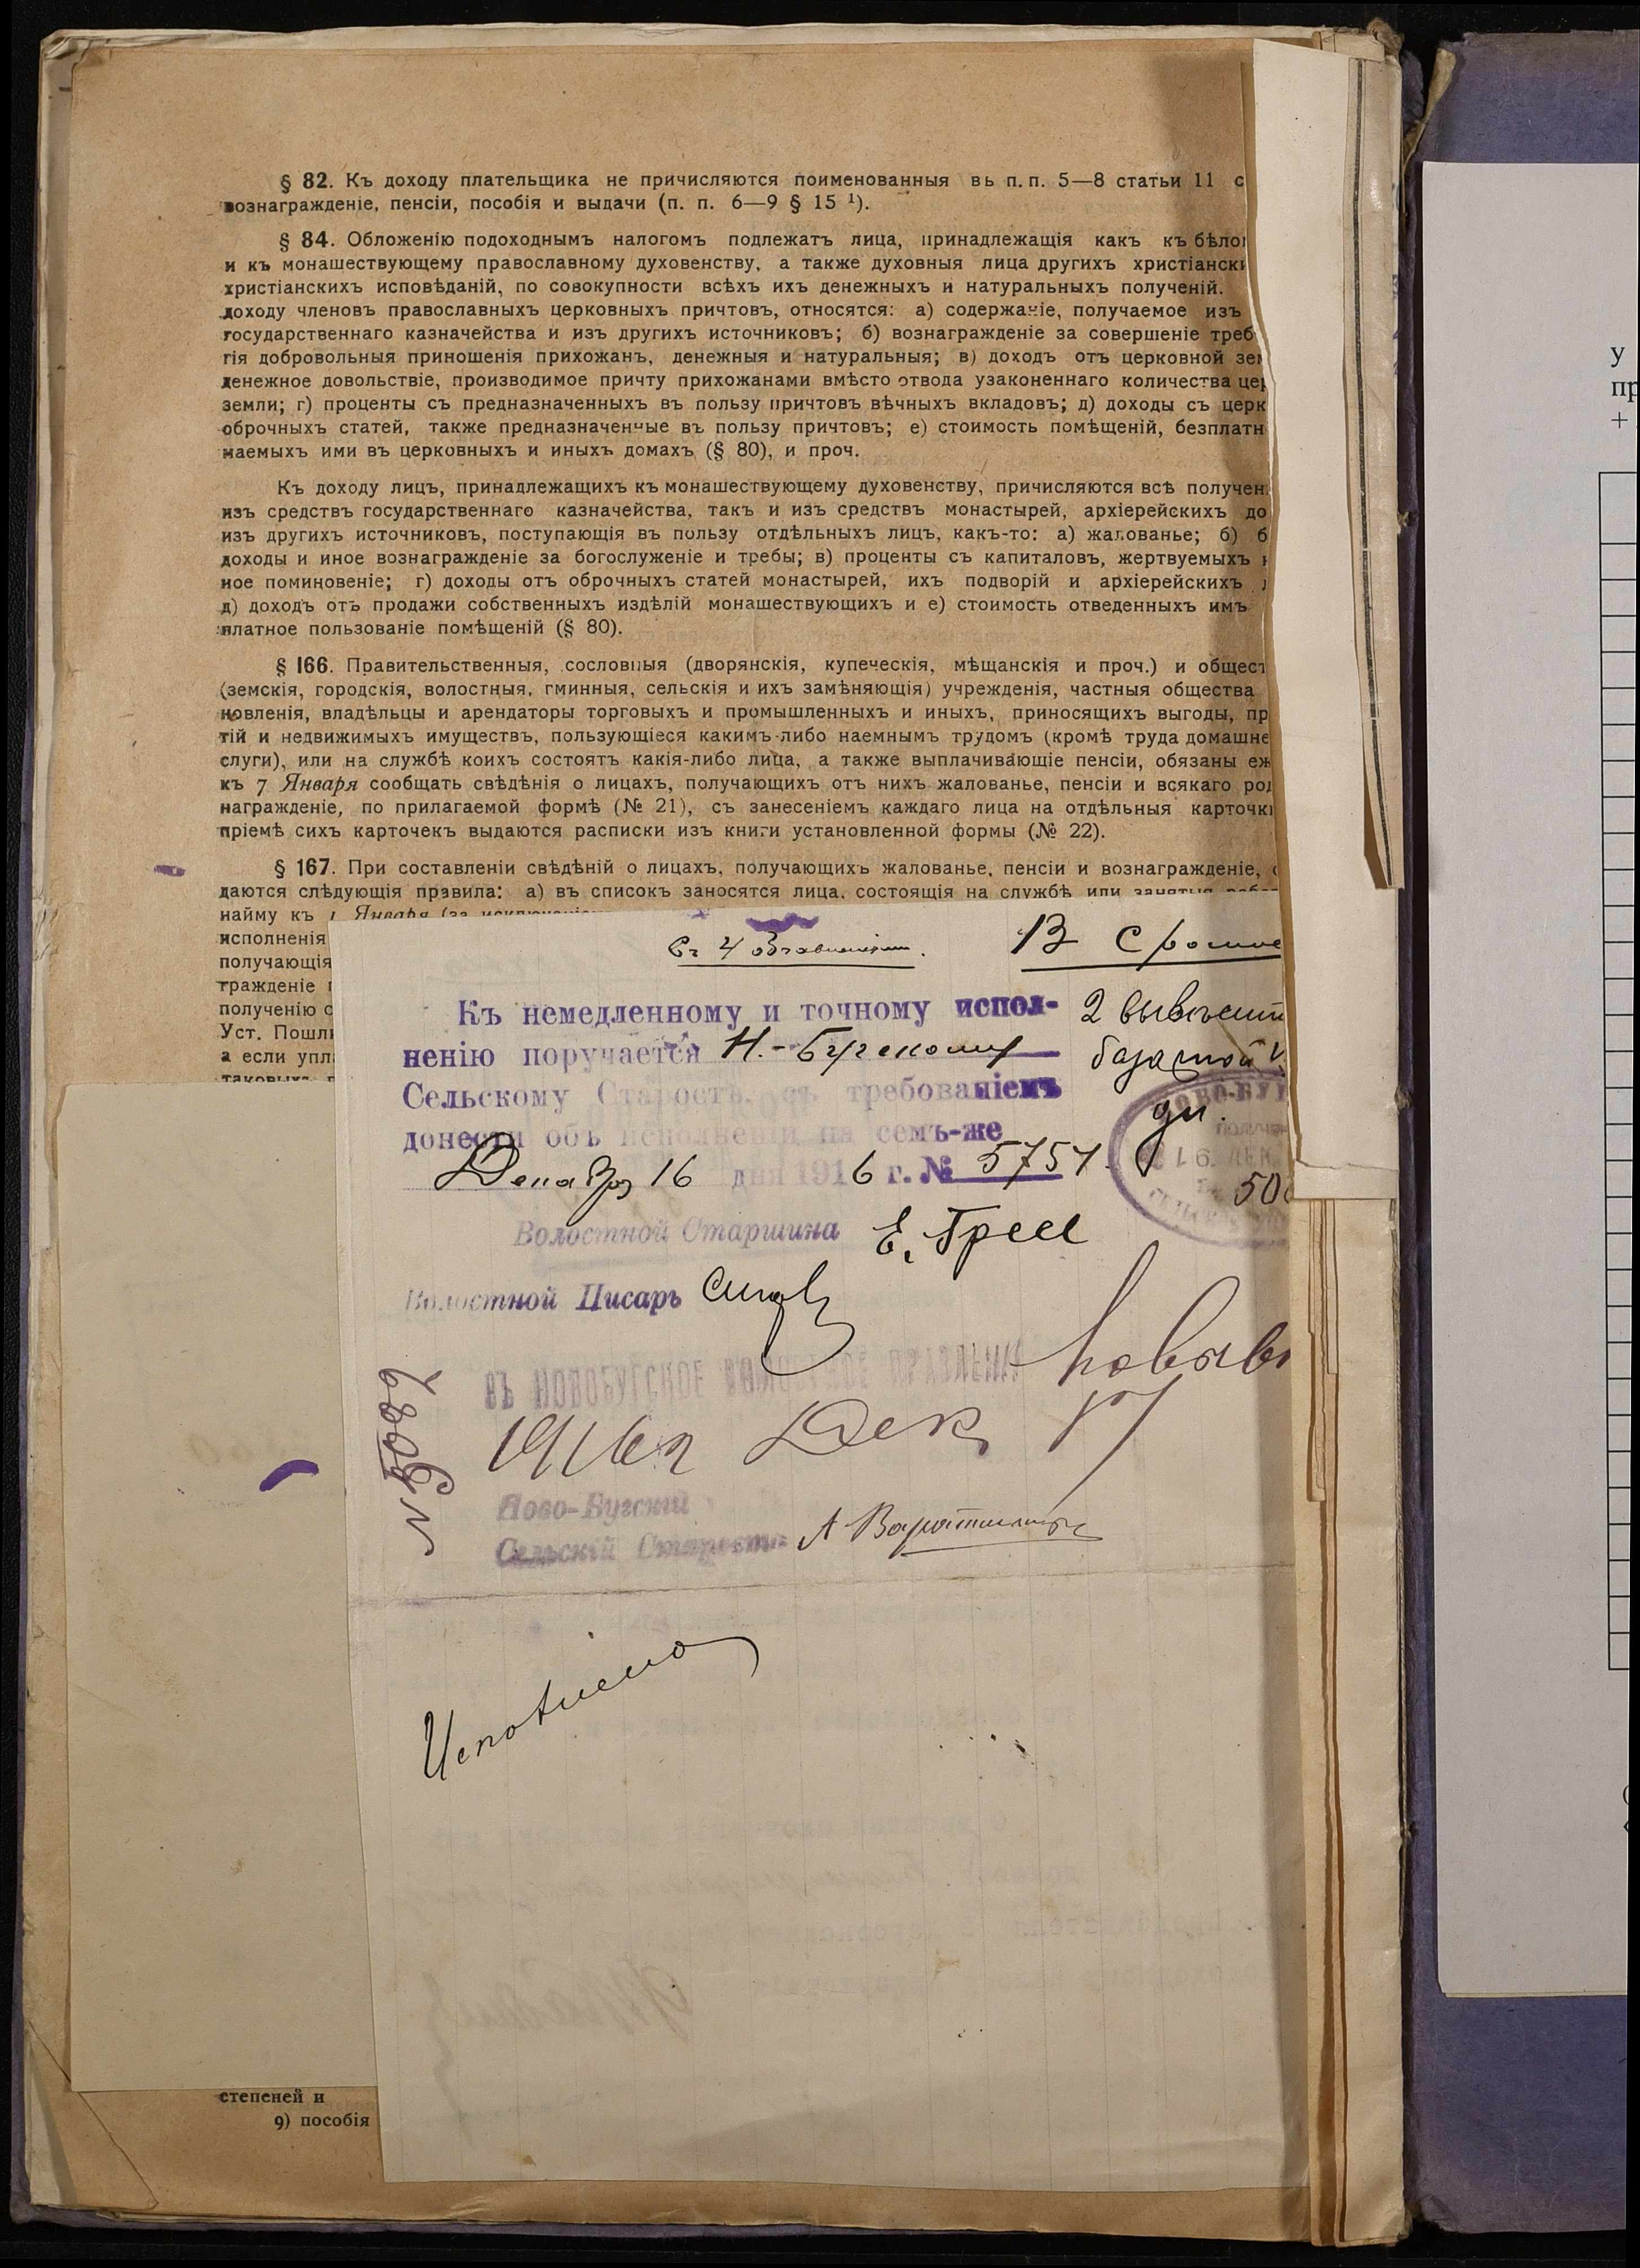 § 82. Къ доходу плательщика не причисляются поименованныя вь п. п. 5—8 статьи 11 с
вознагражденіе, пенсіи, пособія и выдачи (п. п. 6—9 § 15 ¹).
§ 84. Обложенію подоходнымъ налогомъ подлежатъ лица, принадлежащія какъ къ бѣло
и къ монашествующему православному духовенству, а также духовныя лица другихъ христіански
христіанскихъ исповѣданій, по совокупности всѣхъ ихъ денежныхъ и натуральныхъ полученій.
доходу членовъ православныхъ церковныхъ причтовъ, относятся: а) содержаніе, получаемое изъ
государственнаго казначейства и изъ другихъ источниковъ; б) вознагражденіе за совершеніе треб
гія добровольныя приношенія прихожанъ, денежныя и натуральныя; в) доходъ отъ церковной зе
денежное довольствіе, производимое причту прихожанами вмѣсто отвода узаконеннаго количества це
земли; г) проценты съ предназначенныхъ въ пользу причтовъ вѣчныхъ вкладовъ; д) доходы съ церк
оброчныхъ статей, также предназначенные въ пользу причтовъ; е) стоимость помѣщеній, безплатн
маемыхъ ими въ церковныхъ и иныхъ домахъ (§ 80), и проч.
Къ доходу лицъ, принадлежащихъ къ монашествующему духовенству, причисляются всѣ получен
изъ средствъ государственнаго казначейства, такъ и изъ средствъ монастырей, архіерейскихъ до
изъ другихъ источниковъ, поступающія въ пользу отдѣльныхъ лицъ, какъ-то: а) жалованье; б) б
доходы и иное вознагражденіе за богослуженіе и требы; в) проценты съ капиталовъ, жертвуемыхъ
ное поминовеніе; г) доходы отъ оброчныхъ статей монастырей, ихъ подворій и архіерейскихъ
д) доходъ отъ продажи собственныхъ издѣлій монашествующихъ и е) стоимость отведенныхъ имъ
платное пользованіе помѣщеній (§ 80).
§ 166. Правительственныя, сословныя (дворянскія, купеческія, мѣщанскія и проч.) и общест
(земскія, городскія, волостныя, гминныя, сельскія и ихъ замѣняющія) учрежденія, частныя общества
новленія, владѣльцы и арендаторы торговыхъ и промышленныхъ и иныхъ, приносящихъ выгоды, пр
тій и недвижимыхъ имуществъ, пользующіеся какимъ-либо наемнымъ трудомъ (кромѣ труда домашне
слуги), или на службѣ коихъ состоятъ какія-либо лица, а также выплачивающіе пенсіи, обязаны еж
къ 7 Января сообщать свѣдѣнія о лицахъ, получающихъ отъ нихъ жалованье, пенсіи и всякаго род
награжденіе, по прилагаемой формѣ (№ 21), съ занесеніемъ каждаго лица на отдѣльныя карточк
пріемѣ сихъ карточекъ выдаются расписки изъ книги установленной формы (№ 22).
§ 167. При составленіи свѣдѣній о лицахъ, получающихъ жалованье, пенсіи и вознагражденіе,
даются слѣдующія правила: а) въ списокъ заносятся лица, состоящія на службѣ или занятыя
найму къ 1 Января (за исключеніемъ
исполненія
получающія
гражденіе
полученію с
Уст. Пошли
а если упл
таковыхъ
Съ 4
В Срочное
Къ немедленному и точному испол-
нению поручается Н.-Бугскому
Сельскому Старостѣ, съ требованіемъ
донести объ исполненіи на семъ-же
Декабря 16 дня 1916 г. № 5754.
2
базарной
Волостной Старшина Е. Гресс
Волостной Писарь
ВЪ НОВОБУГСКОЕ ВОЛОСТНОЕ ПРАВЛЕНІЕ
1916 г Дек 17
№ 5089
Ново-Бугскій
Сельскій Староста А
Исполнено
степеней и
9) пособія
у
пр
+